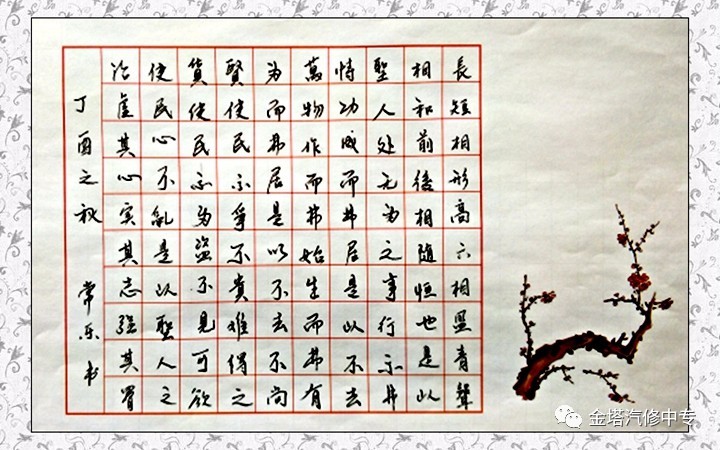 長短相形高下相盈音聲
相和前後相随恒也是以
聖人处无为之事行不
恃功成而弗居是以不去
萬物作而弗始生而弗有
为而弗居是以不去不尚
賢使民不爭不貴难得之
貨使民不为盗不见可欲
使民心不乱是以聖人之
治虚其心实其志强其胃
丁酉之秋 常乐书
金塔汽修中专